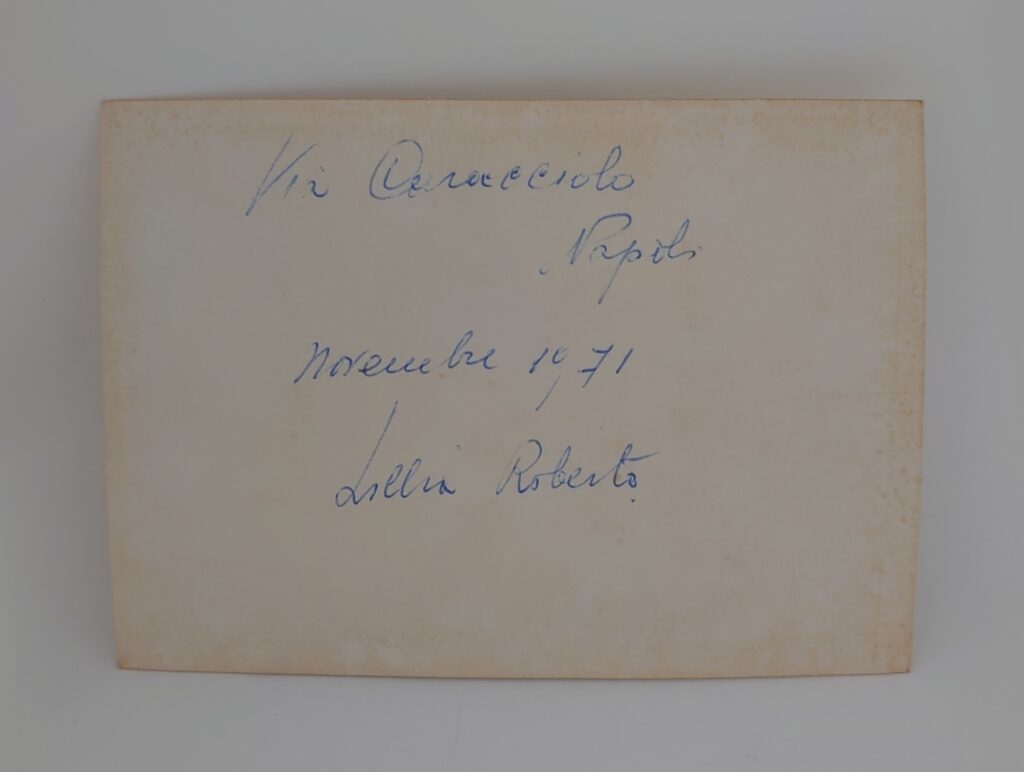 Via Caracciolo
Napoli
Novembre 1971
Lillia Roberto